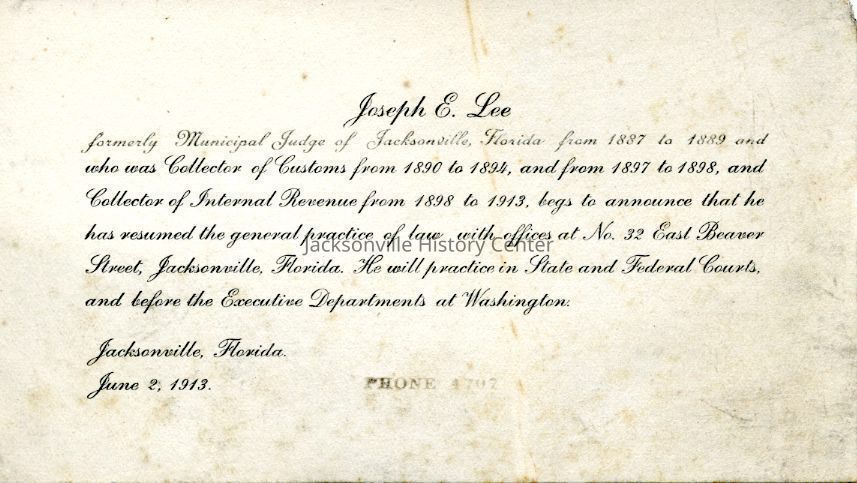 Joseph E. Lee
formerly Municipal Judge of Jacksonville, Florida from 1887 to 1889 and
who was Collector of Customs from 1890 to 1894, and from 1897 to 1898, and
Collector of Internal Revenue from 1898 to 1913, begs to announce that he
has resumed the general practice of law, with offices at No. 32 East Beaver
Jacksonville History Center
Street, Jacksonville, Florida. He will practice in State and Federal Courts,
and before the Executive Departments at Washington.
Jacksonville, Florida.
June 2, 1913.
PHONE